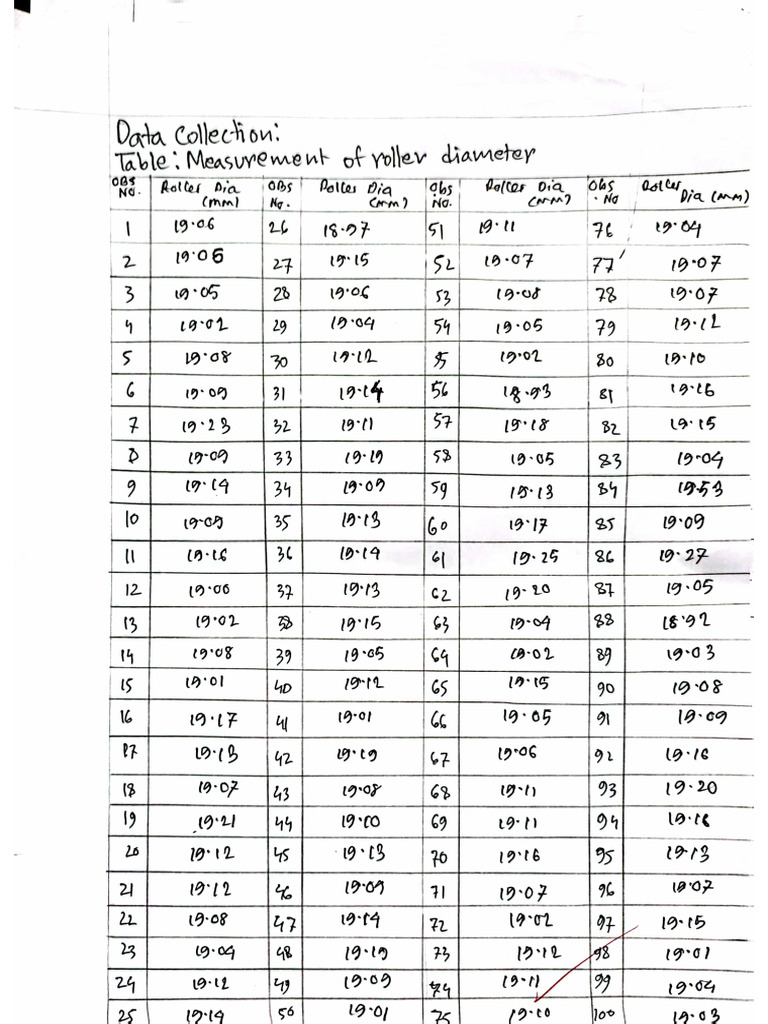 Data Collection:
Table: Measurement of roller diameter
OBS NO. Roller Dia (mm) OBS No. Roller Dia (mm) Obs No. Roller Dia (mm) Obs. No Roller Dia (mm)
1 19.06 26 18.97 51 19.11 76 19.04
2 19.06 27 19.15 52 19.07 77 19.07
3 19.05 28 19.06 53 19.08 78 19.07
4 19.02 29 19.04 54 19.05 79 19.12
5 19.08 30 19.12 55 19.02 80 19.10
6 19.09 31 19.14 56 18.93 81 19.16
7 19.23 32 19.11 57 19.18 82 19.15
8 19.09 33 19.19 58 19.05 83 19.04
9 19.14 34 19.09 59 19.13 84 19.53
10 19.09 35 19.13 60 19.17 85 19.09
11 19.16 36 19.14 61 19.25 86 19.27
12 19.06 37 19.13 62 19.20 87 19.05
13 19.02 38 19.15 63 19.04 88 18.92
14 19.08 39 19.05 64 19.02 89 19.03
15 19.01 40 19.12 65 19.15 90 19.08
16 19.17 41 19.01 66 19.05 91 19.09
17 19.13 42 19.19 67 19.06 92 19.16
18 19.07 43 19.08 68 19.11 93 19.20
19 19.21 44 19.10 69 19.11 94 19.16
20 19.12 45 19.13 70 19.16 95 19.13
21 19.12 46 19.09 71 19.07 96 19.07
22 19.08 47 19.14 72 19.02 97 19.15
23 19.04 48 19.19 73 19.12 98 19.01
24 19.12 49 19.09 74 19.11 99 19.04
25 19.14 50 19.01 75 19.10 100 19.03